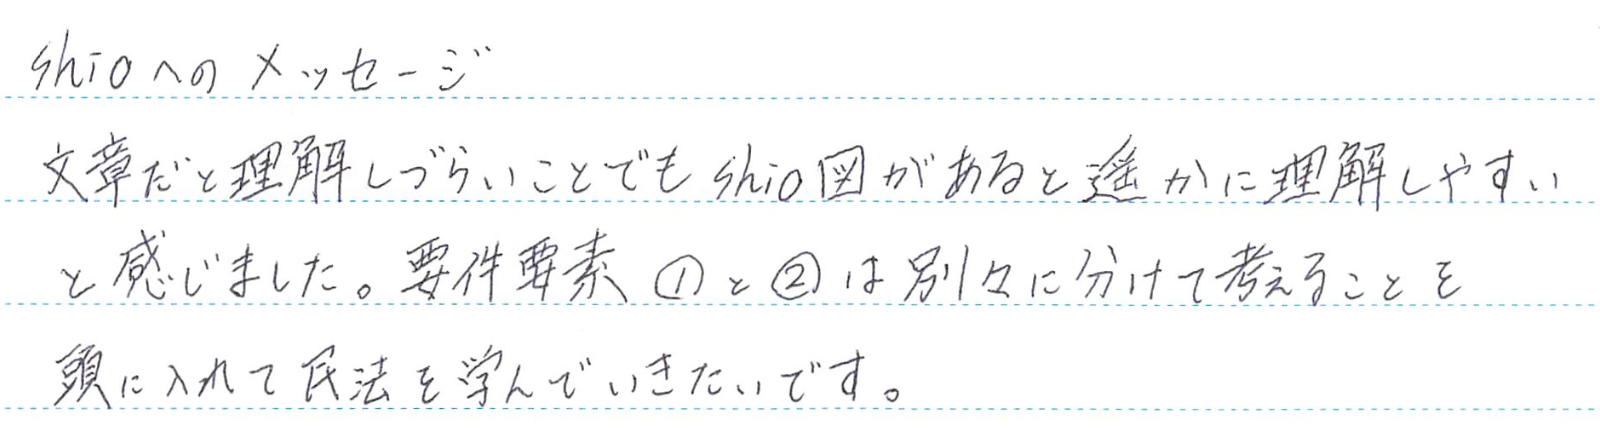 shioへのメッセージ
文章だと理解しづらいことでもshio図があると遥かに理解しやすい
と感じました。要件要素①と②は別々に分けて考えることを
頭に入れて民法を学んでいきたいです。